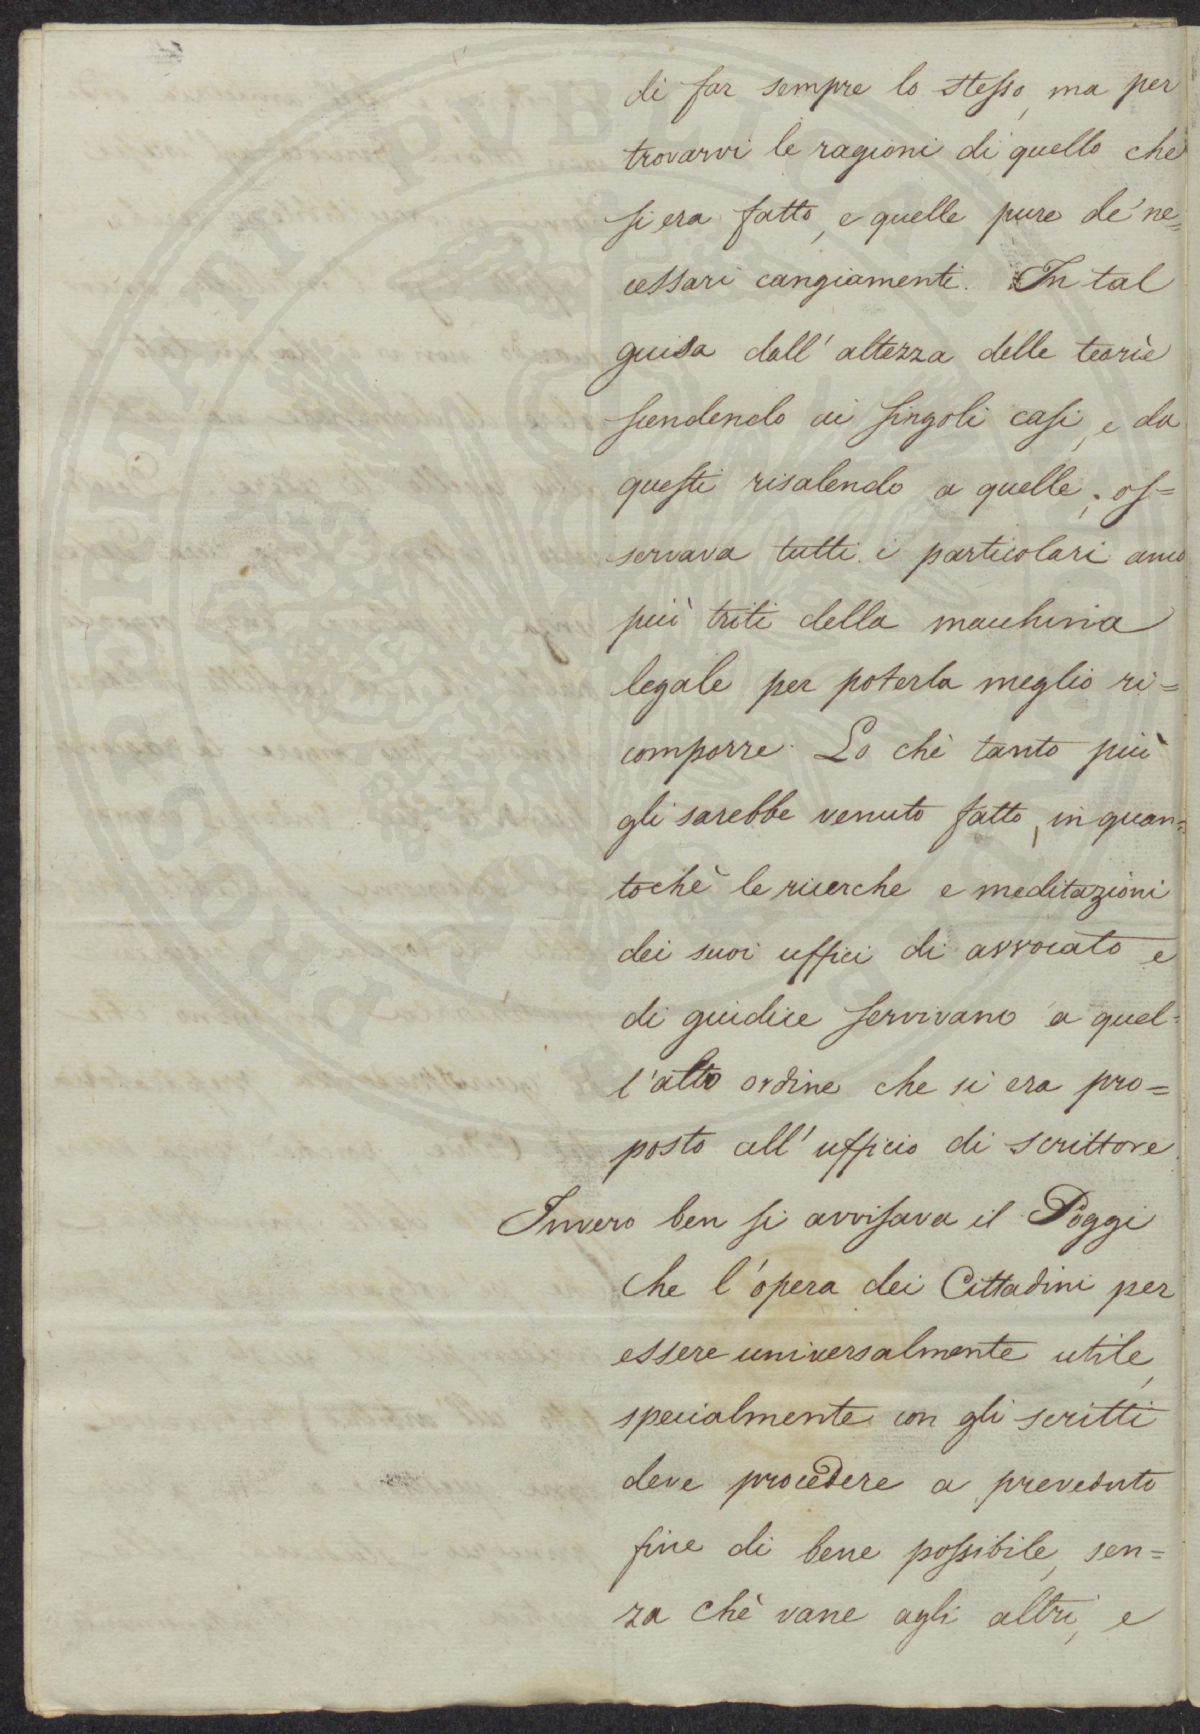 di far sempre lo stesso, ma per
trovarvi le ragioni di quello che
si era fatto, e quelle pure de' ne=
cessari cangiamenti. In tal
guisa dall' altezza delle teorie
scendendo ai singoli casi, e da
questi risalendo a quelle, os=
servava tutti i particolari anco
più triti della macchina
legale per poterla meglio ri=
comporre. Lo chè tanto più
gli sarebbe venuto fatto, in quan=
tochè le ricerche e meditazioni
dei suoi uffici di avvocato e
di giudice servivano a quel=
l'alto ordine che si era pro=
posto all' ufficio di scrittore.
Invero ben si avvisava il Poggi
che l'opera dei Cittadini per
essere universalmente utile,
specialmente con gli scritti
deve procedere a preveduto
fine di bene possibile, sen=
za chè vane agli altri, e